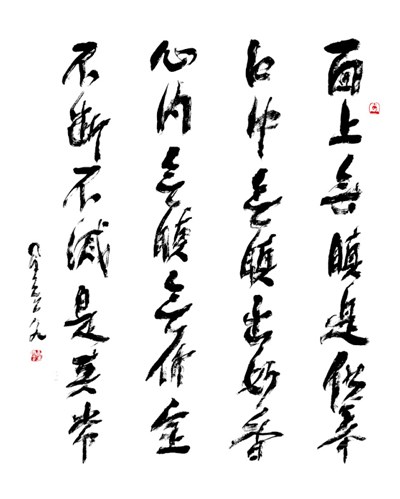 面上無瞋是供養
口中無瞋出妙香
心內無瞋無價宝
不斷不滅是真常